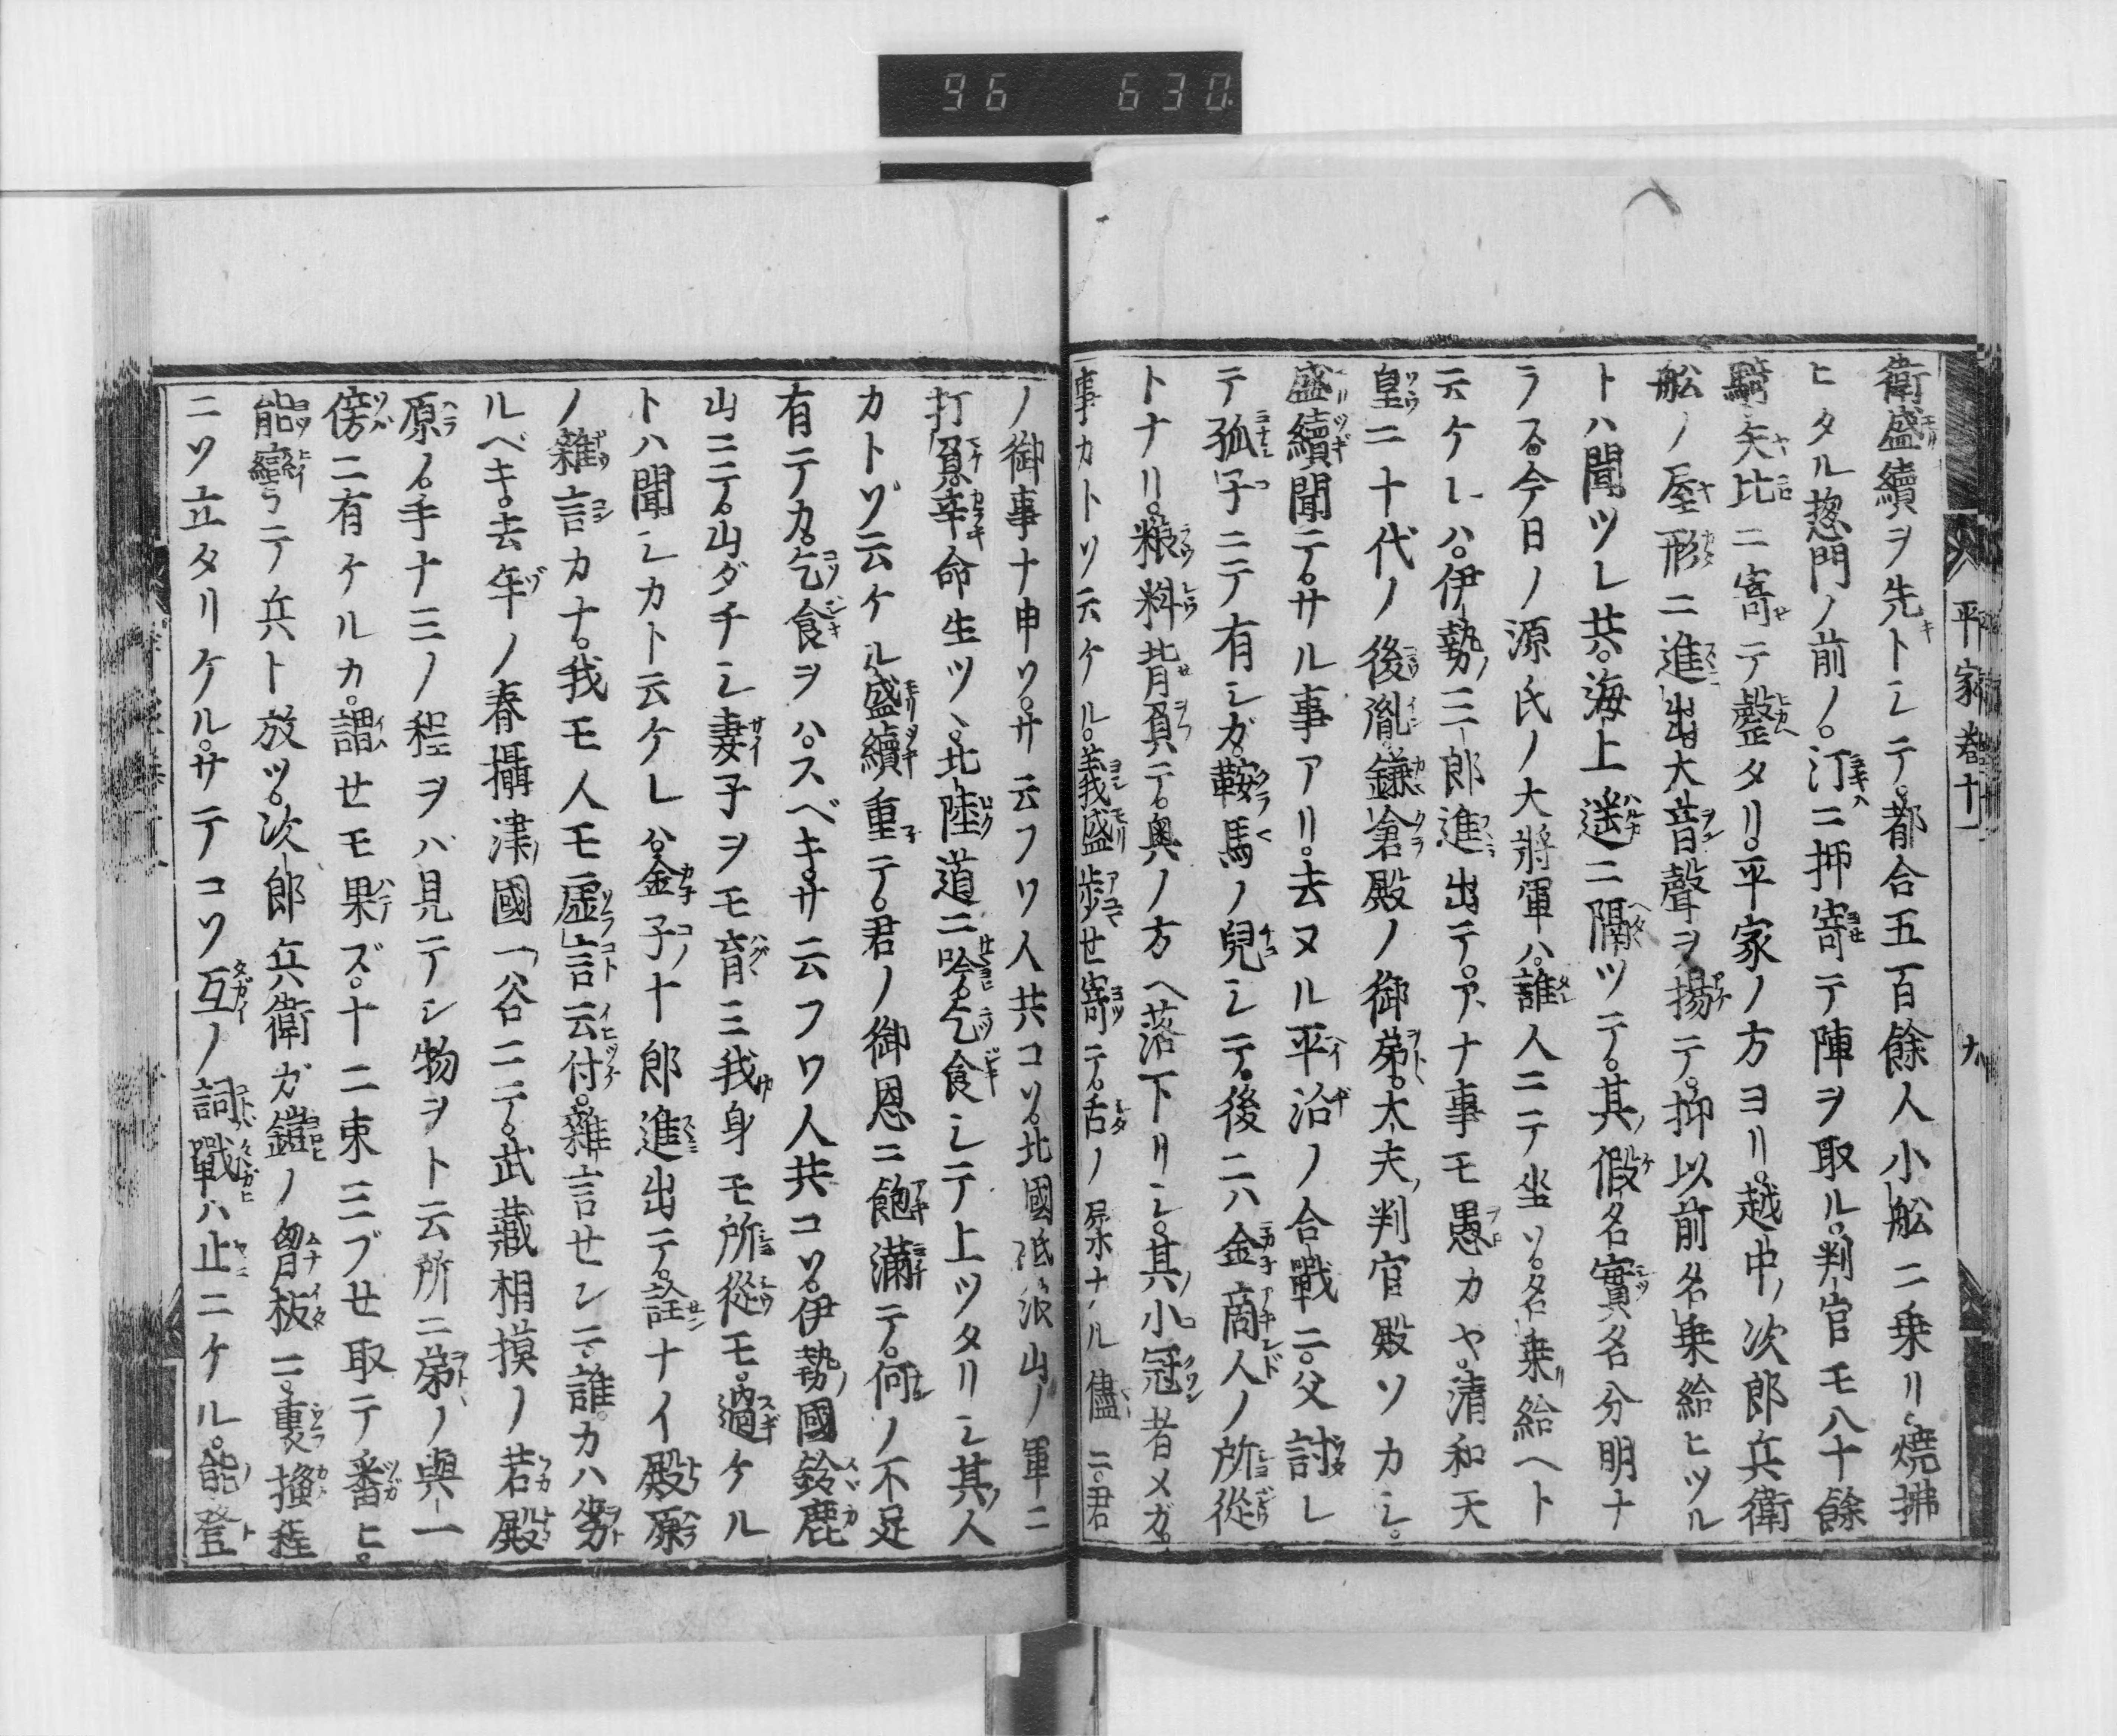 96 630
平家巻十一 九
衛盛續ヲ先トシテ。都合五百餘人小舩ニ乗リ燒拂
ヒタル惣門ノ前ノ。汀ニ押寄テ陣ヲ取ル。判官モ八十餘
騎矢比ニ寄テ磬タリ。平家ノ方ヨリ。越中次郎兵衛
舩ノ屋形ニ進出大音聲ヲ揚テ。抑以前名乗給ヒツル
トハ聞ツレ共。海上遥ニ隔ツテ。其假名實名分明ナ
ラス。今日ノ源氏ノ大將軍ハ。誰人ニテ坐ソ。名乗給ヘト
云ケレハ。伊勢三郎進出テ。アナ事モ愚カヤ。清和天
皇ニ十代ノ後胤。鎌倉殿ノ御弟。太夫判官殿ソカシ。
盛續聞テ。サル事アリ。去ヌル平治ノ合戰ニ。父討レ
テ孤子ニテ有シガ。鞍馬ノ兒シテ。後ニハ金商人ノ所從
トナリ。粮料背負テ。奥ノ方ヘ落下リシ。其小冠者メガ。
事カトソ云ケル。義盛歩セ寄テ。舌ノ和ナル儘ニ。君
ノ御事ナ申ソ。サ云フワ人共コソ。北國砥浪山ノ軍ニ
打負。辛命生ツヽ北陸道ニ吟。乞食シテ上ツタリシ其人
カトゾ云ケル。盛續重テ。君ノ御恩ニ飽滿テ。何ノ不足
有テカ。乞食ヲハ。スベキ。サ云フワ人共コソ。伊勢國鈴鹿
山ニテ。山ダチシ妻子ヲモ育ミ我身モ所從モ。過ケル
トハ聞シカト云ケレハ。金子十郎進出テ。詮ナイ殿原
ノ雜言カナ。我モ人モ虚言云付。雜言センニ誰カハ劣
ルベキ。去年ノ春攝津國一谷ニテ。武藏相摸ノ若殿
原ノ手ナミノ程ヲバ見テシ物ヲト云所ニ弟ノ與一
傍ニ有ケルカ。謂セモ果ズ。十二束三ブセ取テ番ヒ。
能彎テ兵ト放ツ。次郎兵衛ガ鎧ノ胷板ニ。裏掻程
ニソ立タリケル。サテコソ互ノ詞戰ハ止ニケル。能登